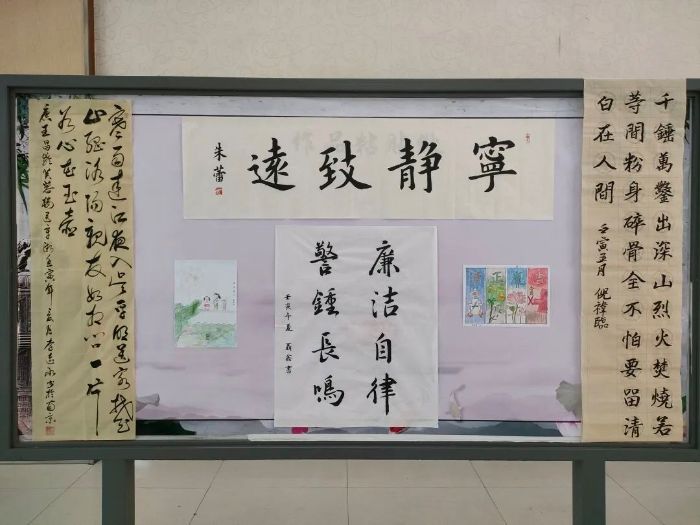 寧靜致遠
朱蕾
千錘萬鑿出深山烈火焚燒若
等間粉身碎骨全不怕要留清
白在人間
壬寅五月
廉洁自律
警鍾長鳴
壬寅年夏
寒雨連江夜入吳平明送客楚
山孤洛陽親友如相問一片
冰心在玉壺
王昌齡芙蓉樓送辛漸壬寅年
書於南京